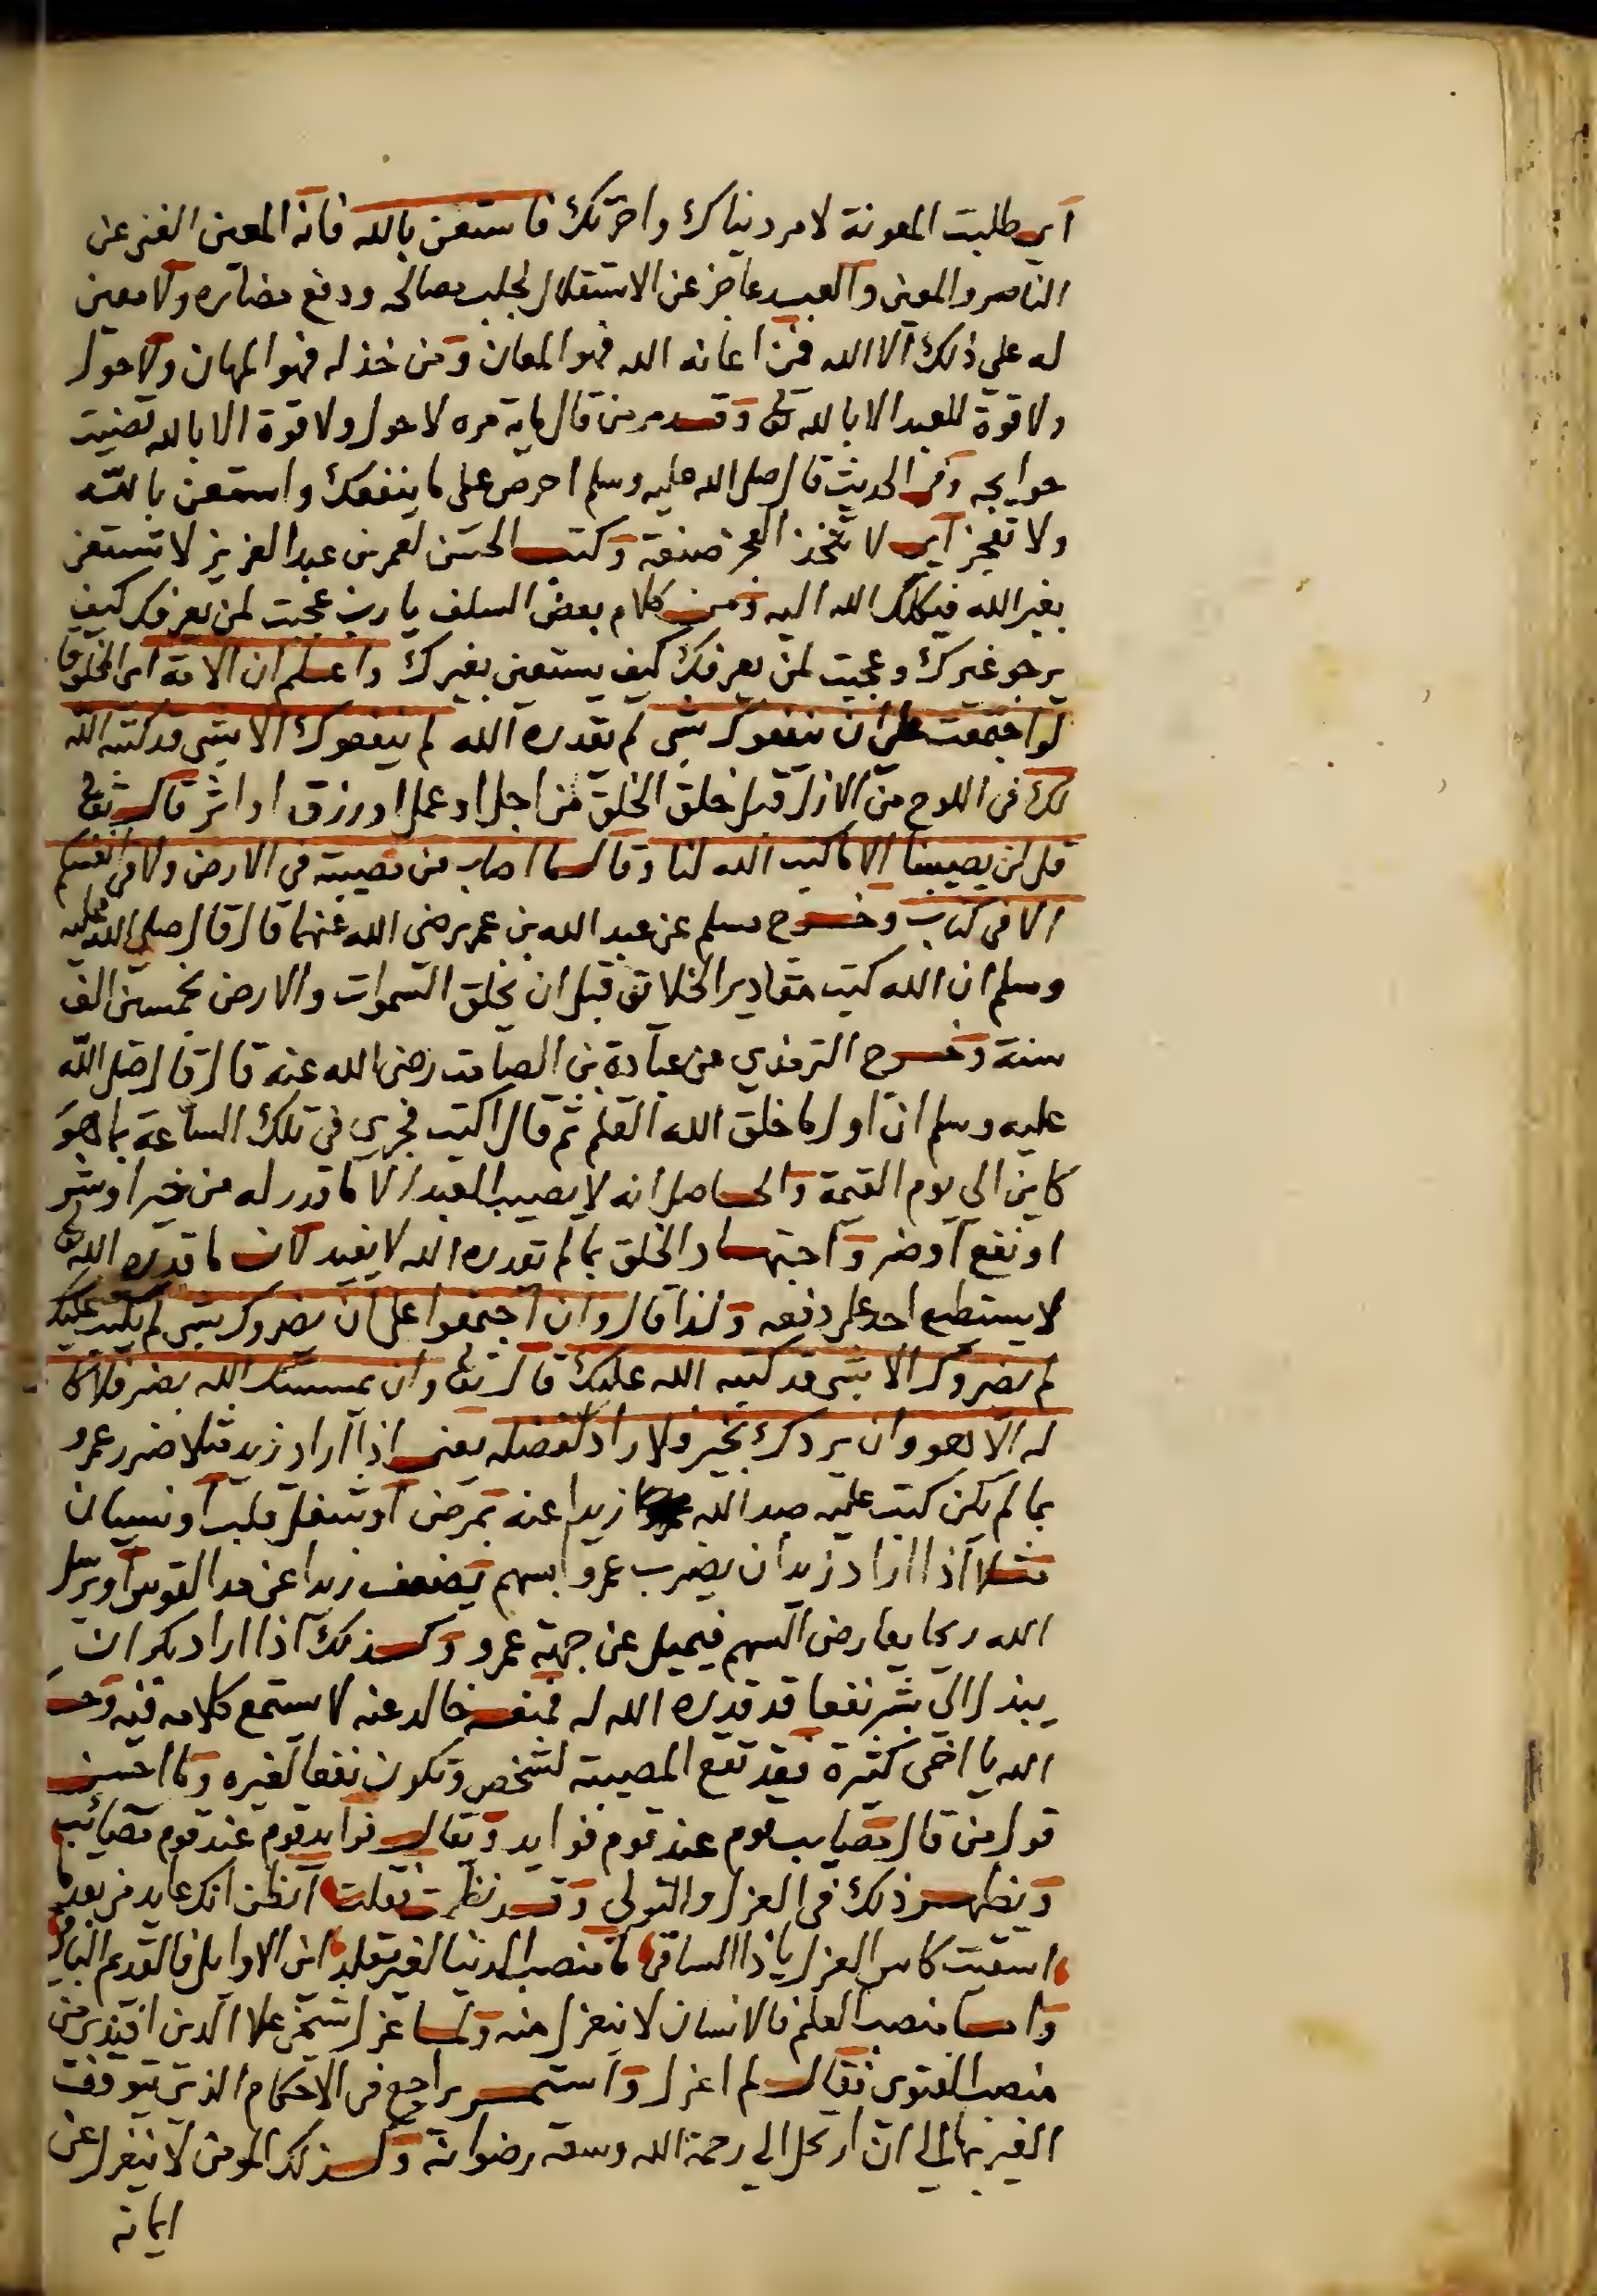 اي طلبت المعونة لامر دنياك واخرتك فاستعن بالله فانه المعين الغني عن
الناصر والمعين والعبد عاجز عن الاستقلال لجلب مصالحه ودفع مضاره ولا معين
له على ذلك الا الله فمن اعانه الله فهو المعان ومن خذله فهو المهان ولا حول
ولا قوة للعبد الا بالله تعالى وقد مر من قال ماية مره لا حول ولا قوة الا بالله قضيت
حوايجه وفي الحديث قال صلى الله عليه وسلم احرص على ما ينفعك واستعن بالله
ولا تعجز اي لا تتخذ العجز صنعة وكتب الحسن لعمر بن عبد العزيز لا تستعن
بغير الله فيكلك الله اليه ومن كلام بعض السلف يا رب عجبت لمن يعرفك كيف
يرجو غيرك وعجبت لمن يعرفك كيف يستعين بغيرك واعلم ان الامة اي المخلوقا
لو اجتمعت على ان ينفعوك بشي لم يقدره الله لم ينفعوك الا بشي قد كتبه الله
لك في اللوح من الازل قبل خلق الخلق من اجل او عمل او رزق او اثر قال تعالى
قل لن يصيبنا الا ما كتب الله لنا وقال ما اصاب من مصيبة في الارض ولا في انفسكم
الا في كتاب وخرج مسلم عن عبد الله بن عمر رضي الله عنهما قال قال صلى الله عليه
وسلم ان الله كتب مقادير الخلائق قبل ان يخلق السموات والارض بخمسين الف
سنة وخرج الترمذي عن عبادة بن الصامت رضي الله عنه قال قال صلى الله
عليه وسلم ان اول ما خلق الله القلم ثم قال اكتب فجرى في تلك الساعة بما هو
كاين الى يوم القيمة والحاصل انه لا يصيب العبد الا ما قدر له من خير او شر
او نفع او ضر واجتهاد الخلق بما لم يقدره الله لا يفيد لان ما قدره الله تعالى
لا يستطيع احد على دفعه ولذا قال وان اجتمعوا على ان يضروك بشي لم يكتب عليك
لم يضروك الا بشي قد كتبه الله عليك قال تعالى وان يمسسك الله بضر فلا كا
له الا هو وان يردك بخير فلا راد لفضله يعني اذا اراد زيد مثلا ضرر عمرو
بما لم يكن كتب عليه صد الله زيدا عنه بمرض او شغل قلب او نسيان
مثلا اذا اراد زيد ان يضرب عمروا بسهم يضعف زيدا عن مد القوس او يرسل
الله ريحا يعارض السهم فيميل عن جهة عمرو وكذلك اذا اراد بكر ان
يبذل الى بشر نفعا قد قدره الله له فمنعه خالد عنه لا يستمع كلامه فيه وحـ
الله يا اخي كثيرة فقد تقع المصيبة لشخص وتكون نفعا لغيره وما احسن
قول من قال مصايب قوم عند قوم فوايد ويقال فوايد قوم عند قوم مصائب
ويظهر ذلك في العزل والتولي وقد نظمت فقلت اتظن انك عايد من بعد ما
اسقيت كاس العزل يا ذا الساقي ما منصب الدنيا لغير يقلد اين الاوايل فالقديم الباقي
واما منصب العلم فالانسان لا ينعزل منه ولما عزل شيخي علا الدين افندي من
منصب الفتوى فقال لم اعزل واستمر يراجع في الاحكام الذي يتوقف
الغير بها الى ان ارتحل الى رحمة الله وسعة رضوانه وكذلك المومن لا ينعزل عن
ايمانه